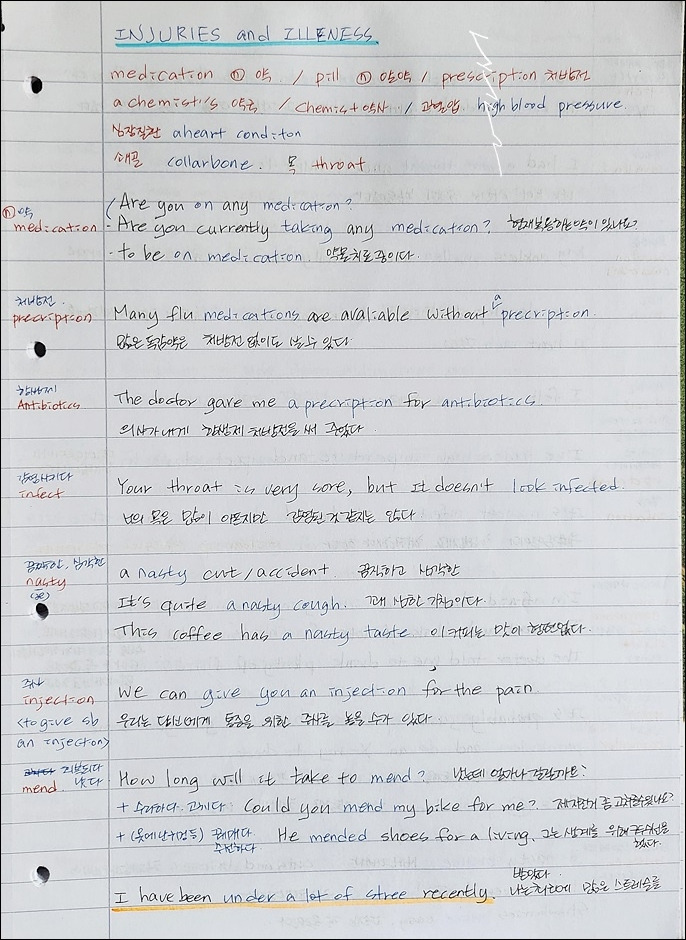 INJURIES and ILLENESS
medication ⓝ 약 / pill ⓝ 알약 / prescription 처방전
a chemist's 약국 / chemist 약사 / 고혈압 high blood pressure.
심장질환 a heart conditon
쇄골 collarbone. 목 throat.
ⓝ 약
medication
Are you on any medication?
- Are you currently taking any medication? 현재 복용하는 약이 있나요?
- to be on medication 약물치료 중이다.
처방전.
precription
Many flu medications are avaliable without a precription.
많은 독감약은 처방전 없이도 살 수 있다.
항생제
Antibiotics
The doctor gave me a precription for antibiotics.
의사가 내게 항생제 처방전을 써 주었다.
감염시키다
infect
Your throat is very sore, but it doesn't look infected.
너의 목은 많이 아프지만 감염된 것 같지는 않다
끔찍한, 심각한
nasty
a nasty cut/accident. 끔찍하고 심각한
It's quite a nasty cough. 꽤 심한 기침이다.
This coffee has a nasty taste. 이 커피는 맛이 형편없다.
주사
injection
<to give sb
an injection>
We can give you an injection for the pain
우리는 당신에게 통증을 위한 주사를 놓을 수가 있다.
낫다.
mend.
How long will it take to mend? 낫는데 얼마나 걸릴까요?
+ 수리하다. 고치다 Could you mend my bike for me? 제 자전거 좀 고쳐줄 수 있나요?
+ (옷에 난 구멍 등) 꿰매다 수선하다 He mended shoes for a living. 그는 생계를 위해 구두수선을 했었다.
I have been under a lot of stree recently. 나는 최근에 많은 스트레스를 받았다.